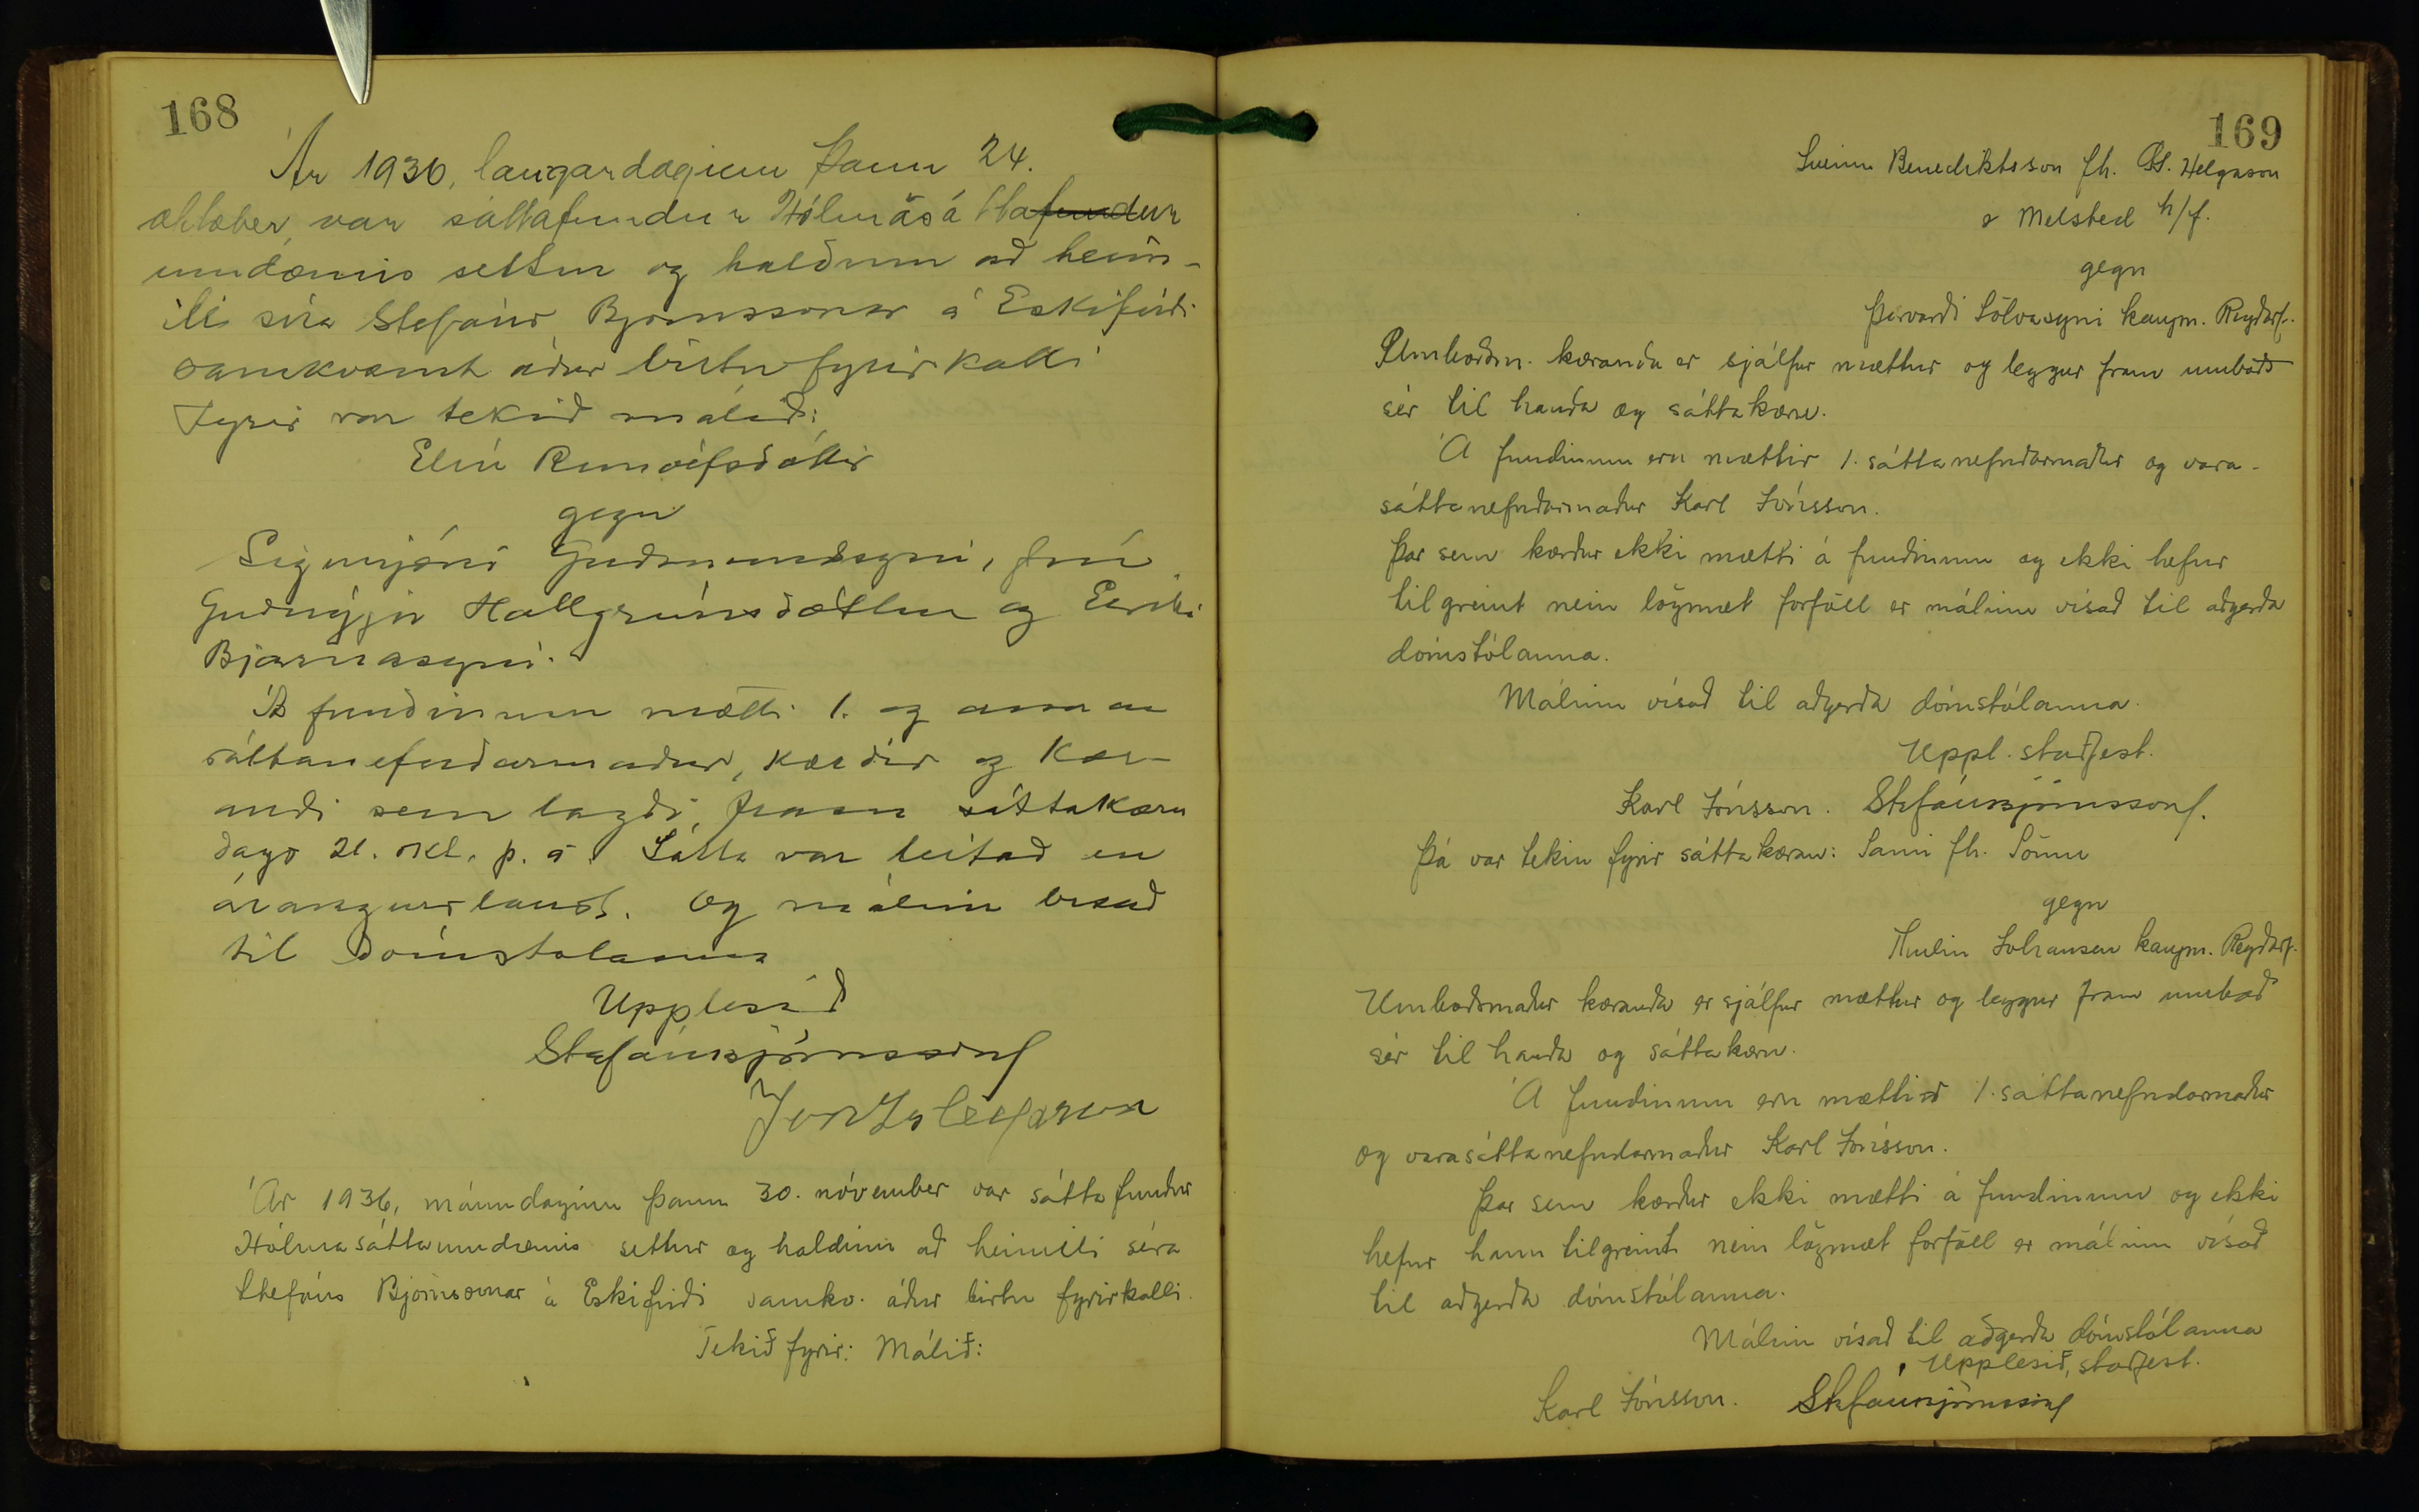 168
Ár 1936, laugardaginn þann 24.
október, var sáttafundur Hólmasáttafundur
umdæmis settur og haldinn að heim-
ili síra Stefáns Björnssonar á Eskifirði
samkvæmt áður birtu fyrirkalli
Fyrir var tekið málið:
Elín Runólfsdóttir
gegn
Sigurjóni Guðmundssyni, frú
Guðnýju Hallgrímsdóttur og Eiríki
Bjarnasyni.
Á fundinum mætti 1. og annar
sáttanefndarmaður, kærðir og kær-
andi sem lagði fram sáttakæru
dags 21. okt. þ. á. Sátta var leitað en
árangurslaust. Og málinu vísað
til dómstolanna
Upplesið
Stefán Björnsson
Jón Ísleifsson
Ár 1936, mánudaginn þann 30. nóvember var sáttafundur
Hólmasáttaumdæmis settur og haldinn að heimili séra
Stefáns Björnssonar á Eskifirði samkv. áður birtu fyrirkalli.
Tekið fyrir: Málið:
169
Sveinn Benediktsson fh. Ól. Helgason
& Melsted h/f.
gegn
Þorvarði Sölvasyni kaupm. Reyðarf.
Umboðsm. kæranda er sjálfur mættur og leggur fram umboð
sér til handa og sáttakæru.
Á fundinum eru mættir 1. sáttanefndarmaður og vara-
sáttanefndarmaður Karl Jónsson.
Þar sem kærður ekki mætti á fundinum og ekki hefur
tilgreint nein lögmæt forföll er málinu vísað til aðgerða
dómstólanna.
Málinu vísað til aðgerða dómstólanna.
Uppl. staðfest.
Karl Jónsson. Stefán Björnsson.
Þá var tekin fyrir sáttakæran: Sami fh. Sömu
gegn
Thulin Johansen kaupm. Reyðarf.
Umboðsmaður kæranda er sjálfur mættur og leggur fram umboð
sér til handa og sáttakæru.
Á fundinum eru mættir 1. sáttanefndarmaður
og varasáttanefndarmaður Karl Jónsson.
Þar sem kærður ekki mætti á fundinum og ekki
hefur hann tilgreint nein lögmæt forföll er málinu vísað
til aðgerða dómstólanna.
Málinu vísað til aðgerða dómstólanna
Upplesið, staðfest.
Karl Jónsson. Stefán Björnsson